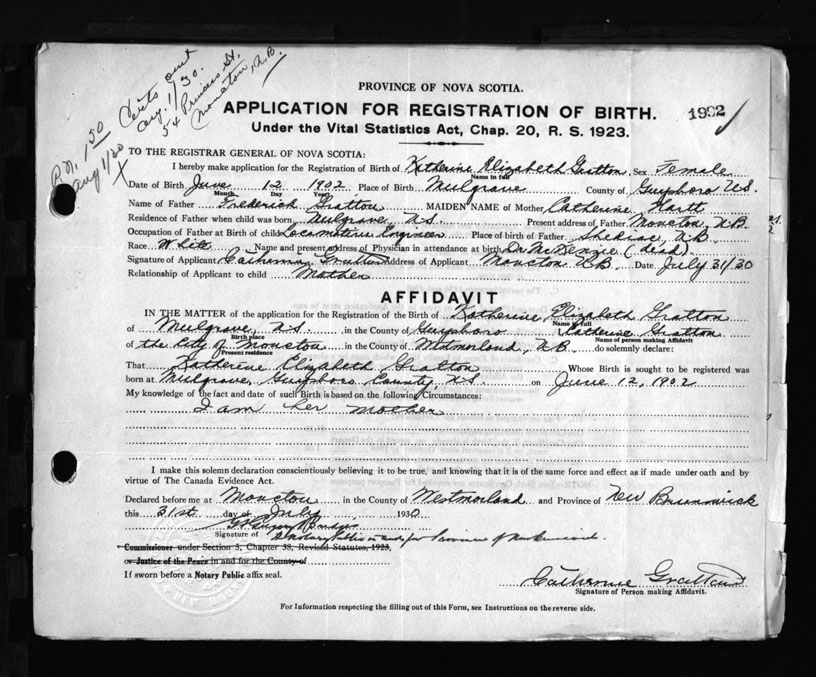 P.N. 1.50
Aug 1/30
X
Certs out
Aug. 1/30.
54 Princess St.
Moncton, N.B.
PROVINCE OF NOVA SCOTIA.
APPLICATION FOR REGISTRATION OF BIRTH.
1902
Under the Vital Statistics Act, Chap. 20, R. S. 1923.
TO THE REGISTRAR GENERAL OF NOVA SCOTIA:
I hereby make application for the Registration of Birth of Katherine Elizabeth Gratton Sex Female
Name in full
Date of Birth June 12 1902 Place of Birth Mulgrave County of Guysboro N.S.
Month Day Year
Name of Father Frederick Gratton MAIDEN NAME of Mother Catherine Hartt
Residence of Father when child was born Mulgrave, N.S. Present address of Father Moncton, N.B.
Occupation of Father at Birth of child Locomotive Engineer Place of birth of Father Shediac, N.B.
Race White Name and present address of Physician in attendance at birth Dr McKenzie (dead)
Signature of Applicant Catherine Gratton Address of Applicant Moncton N.B. Date July 31/30
Relationship of Applicant to child Mother
AFFIDAVIT
IN THE MATTER of the application for the Registration of the Birth of Katherine Elizabeth Gratton
Name in full
of Mulgrave, N.S. in the County of Guysboro Catherine Gratton
Birth place Name of person making Affidavit
of the City of Moncton in the County of Westmorland, N.B. do solemnly declare:
Present residence
That Katherine Elizabeth Gratton Whose Birth is sought to be registered was
born at Mulgrave, Guysboro County, N.S. on June 12, 1902
My knowledge of the fact and date of such Birth is based on the following Circumstances:
I am her mother
I make this solemn declaration conscientiously believing it to be true, and knowing that it is of the same force and effect as if made under oath and by
virtue of The Canada Evidence Act.
Declared before me at Moncton in the County of Westmorland and Province of New Brunswick
this 31st day of July 1930
Signature of
A Notary Public in and for Province of New Brunswick
Commissioner under Section 5, Chapter 38, Revised Statutes, 1923,
or Justice of the Peace in and for the County of
If sworn before a Notary Public affix seal.
Catherine Gratton
Signature of Person making Affidavit.
For Information respecting the filling out of this Form, see Instructions on the reverse side.